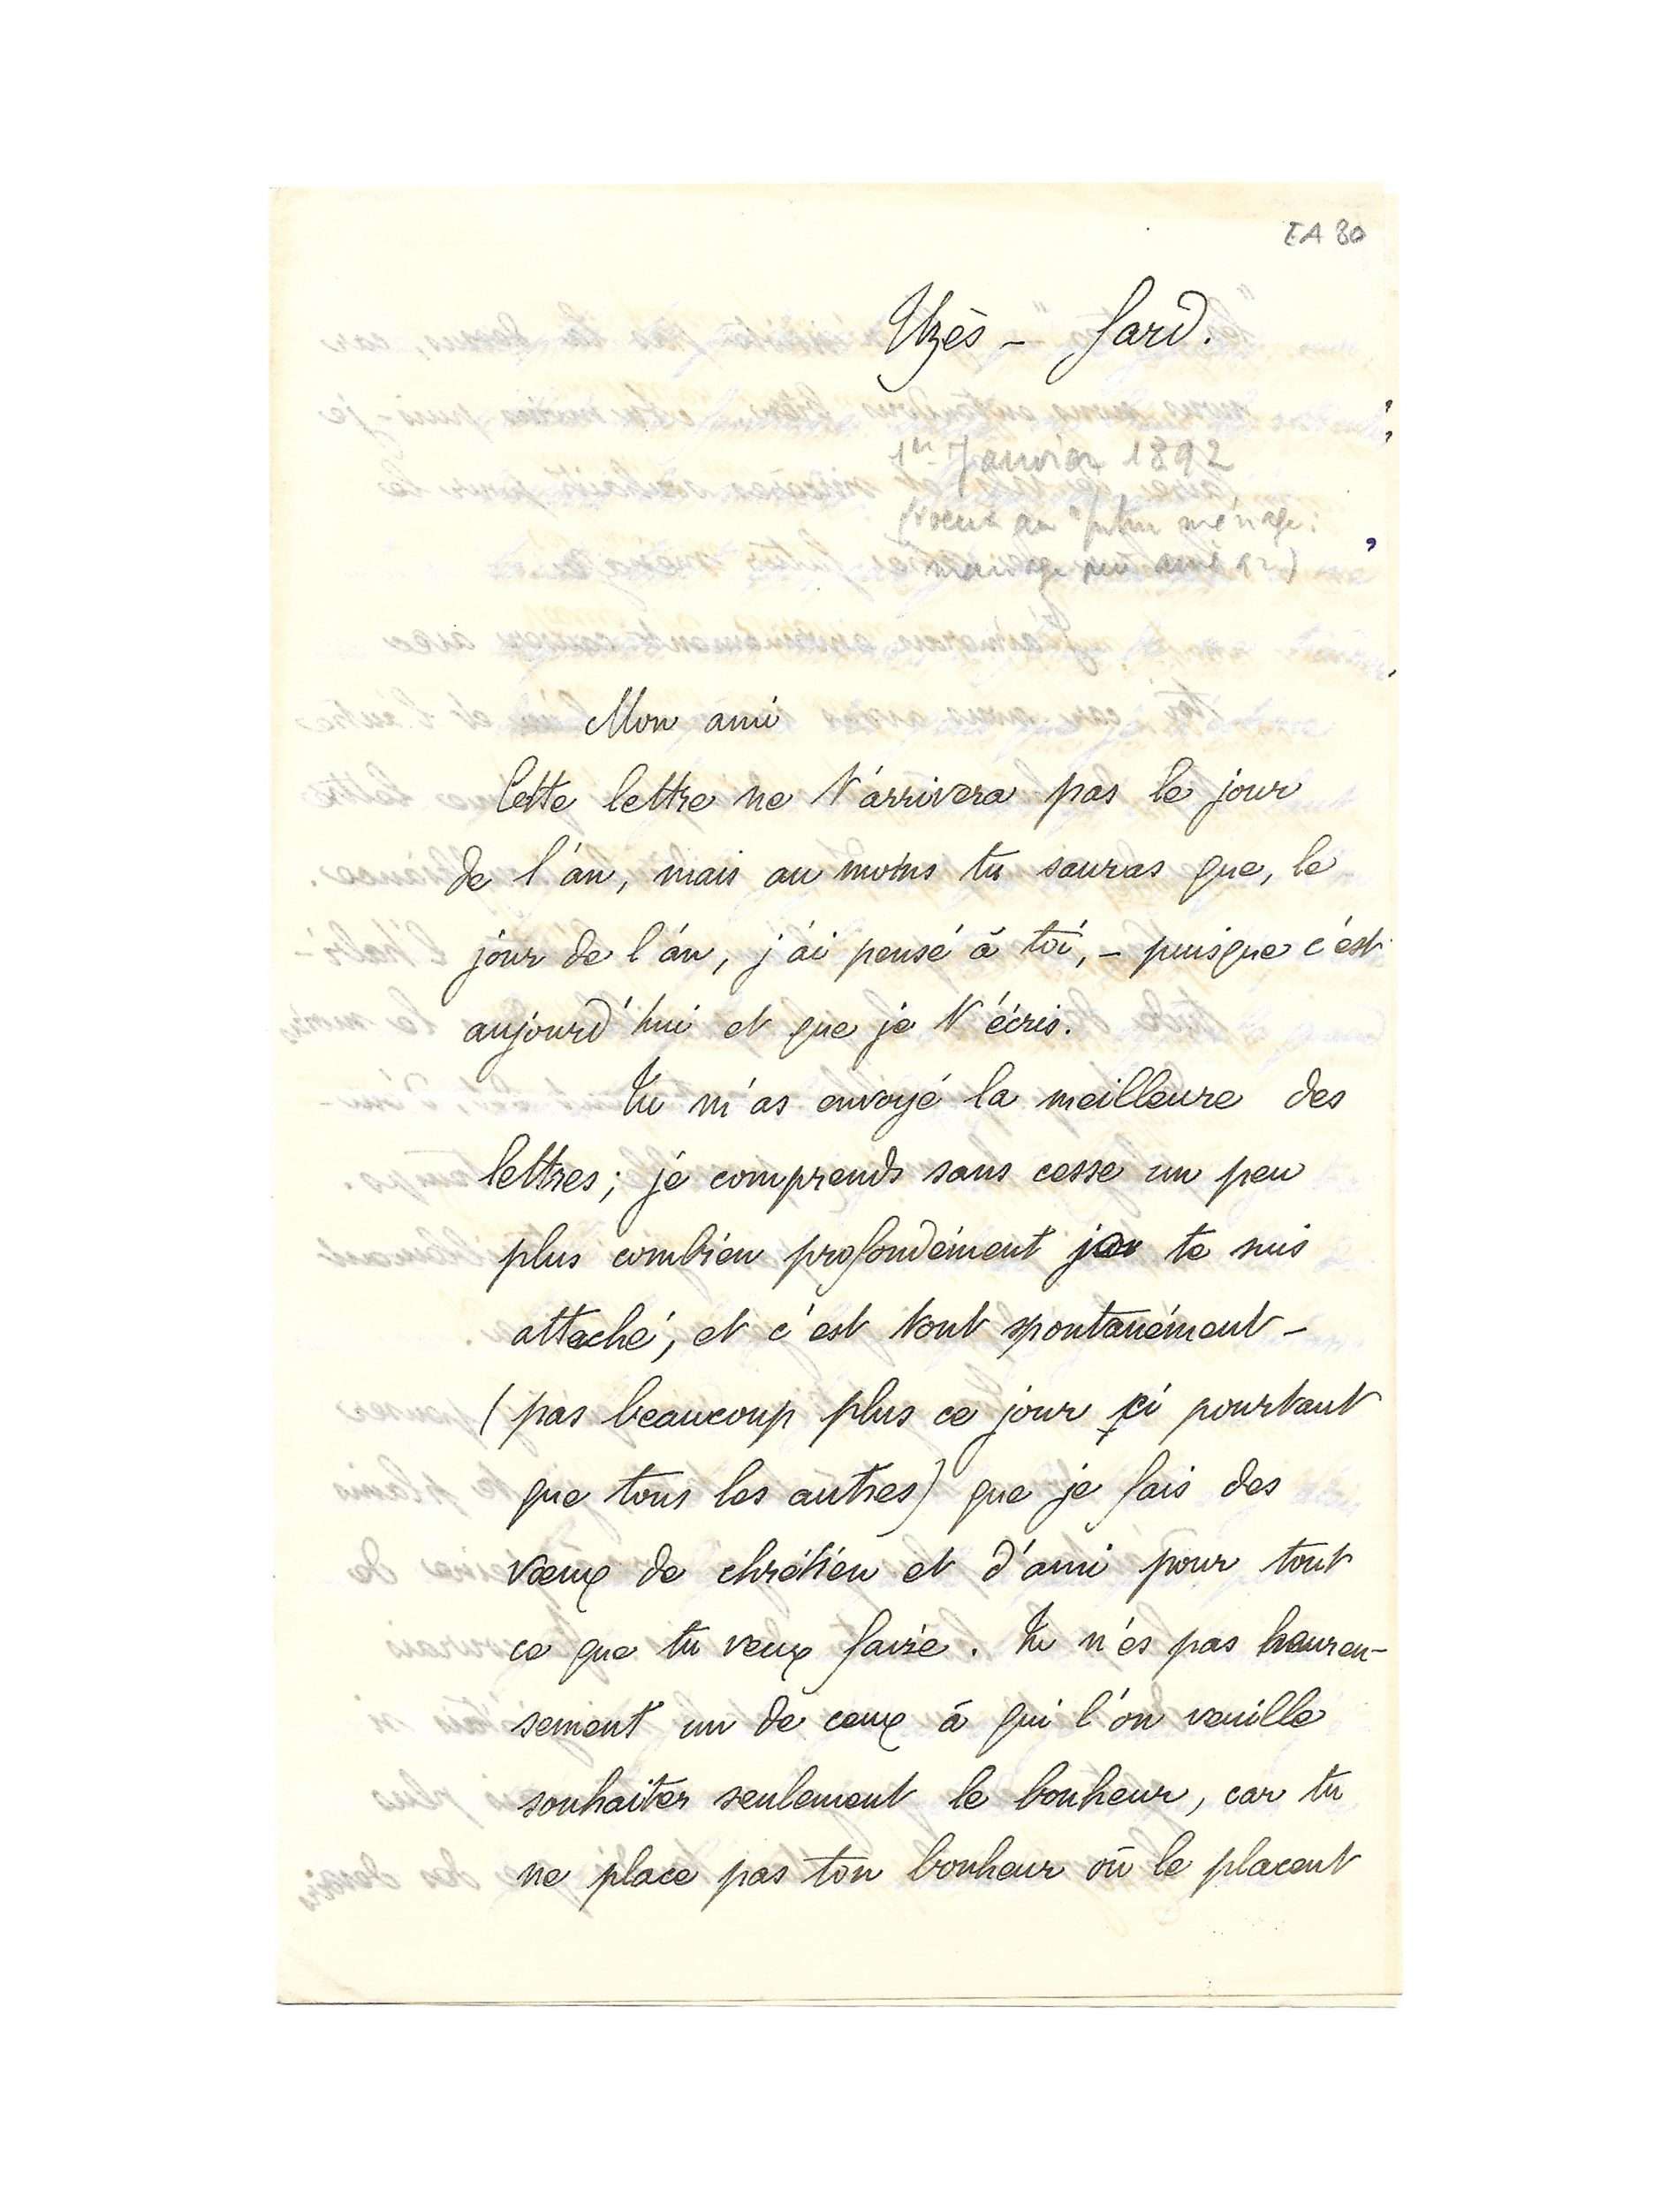 EA 80
Uzès – Gard.
1er Janvier 1892
(voeux au "futur ménage:
mariage
Mon ami
Cette lettre ne t'arrivera pas le jour
de l'an, mais au moins tu sauras que, le
jour de l'an, j'ai pensé à toi, – puisque c'est
aujourd'hui et que je t'écris.
Tu m'as envoyé la meilleure des
lettres; je comprends sans cesse un peu
plus combien profondément je te suis
attaché, et c'est tout spontanément –
(pas beaucoup plus ce jour ci pourtant
que tous les autres) que je fais des
vœux de chrétien et d'ami pour tout
ce que tu veux faire. Tu n'es pas heureu-
sement un de ceux à qui l'on veuille
souhaiter seulement le bonheur, car tu
ne place pas ton bonheur où le placent